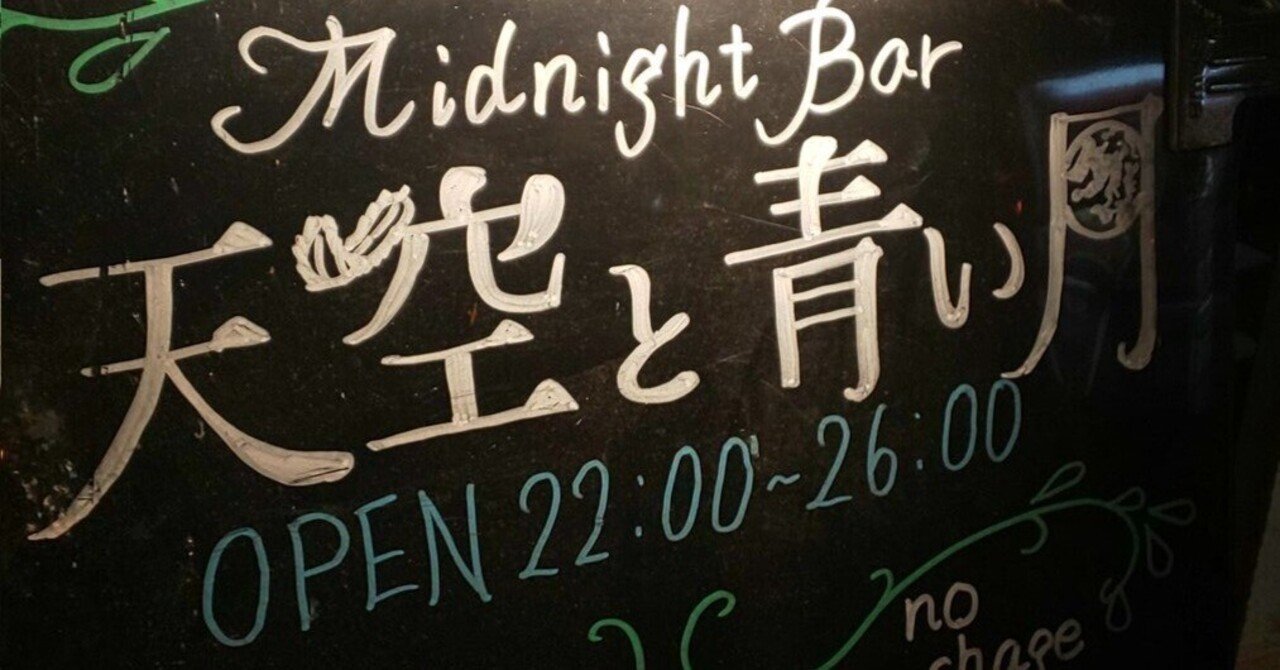 Midnight Bar
天空と青い月
OPEN 22:00~26:00
no